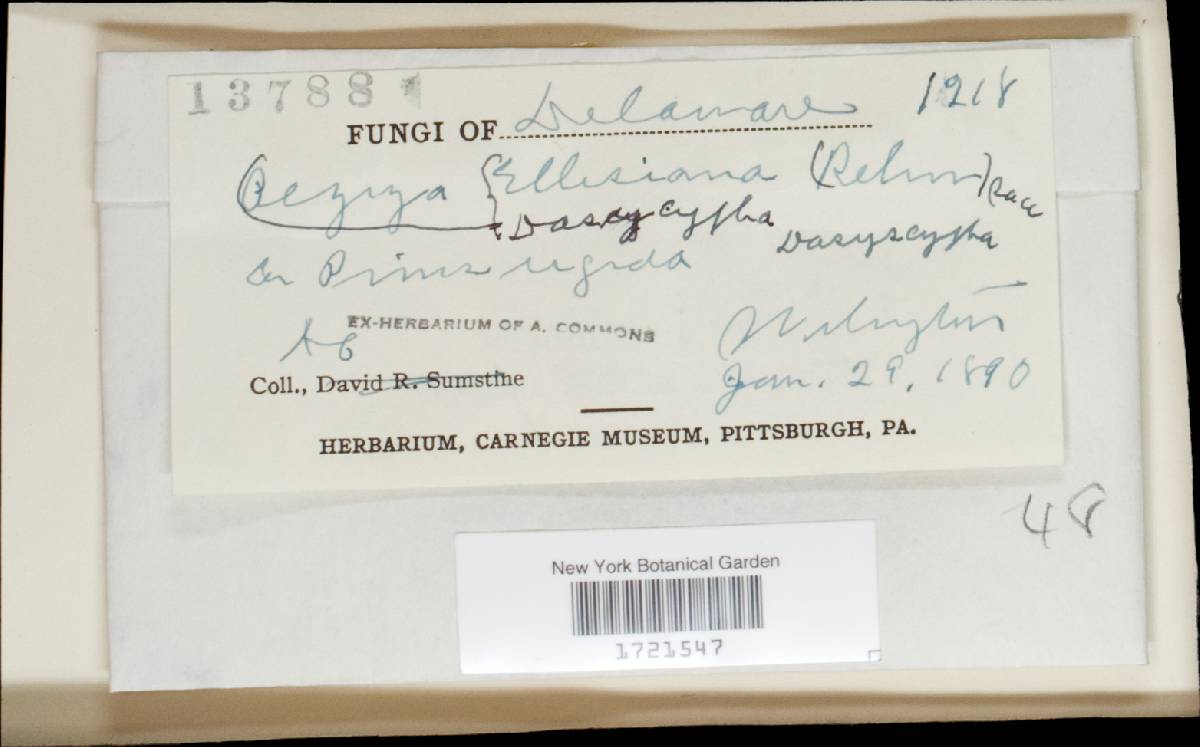 137881
FUNGI OF Delaware 1218
Peziza Ellisiana (Rehm) Sacc
Dascycypha Dasyscypha
on Pinus rigida
EX-HERBARIUM OF A. COMMONS
Wilmington
Coll., David R. Sumstine
Jan. 29, 1890
HERBARIUM, CARNEGIE MUSEUM, PITTSBURGH, PA.
48
New York Botanical Garden
1721547